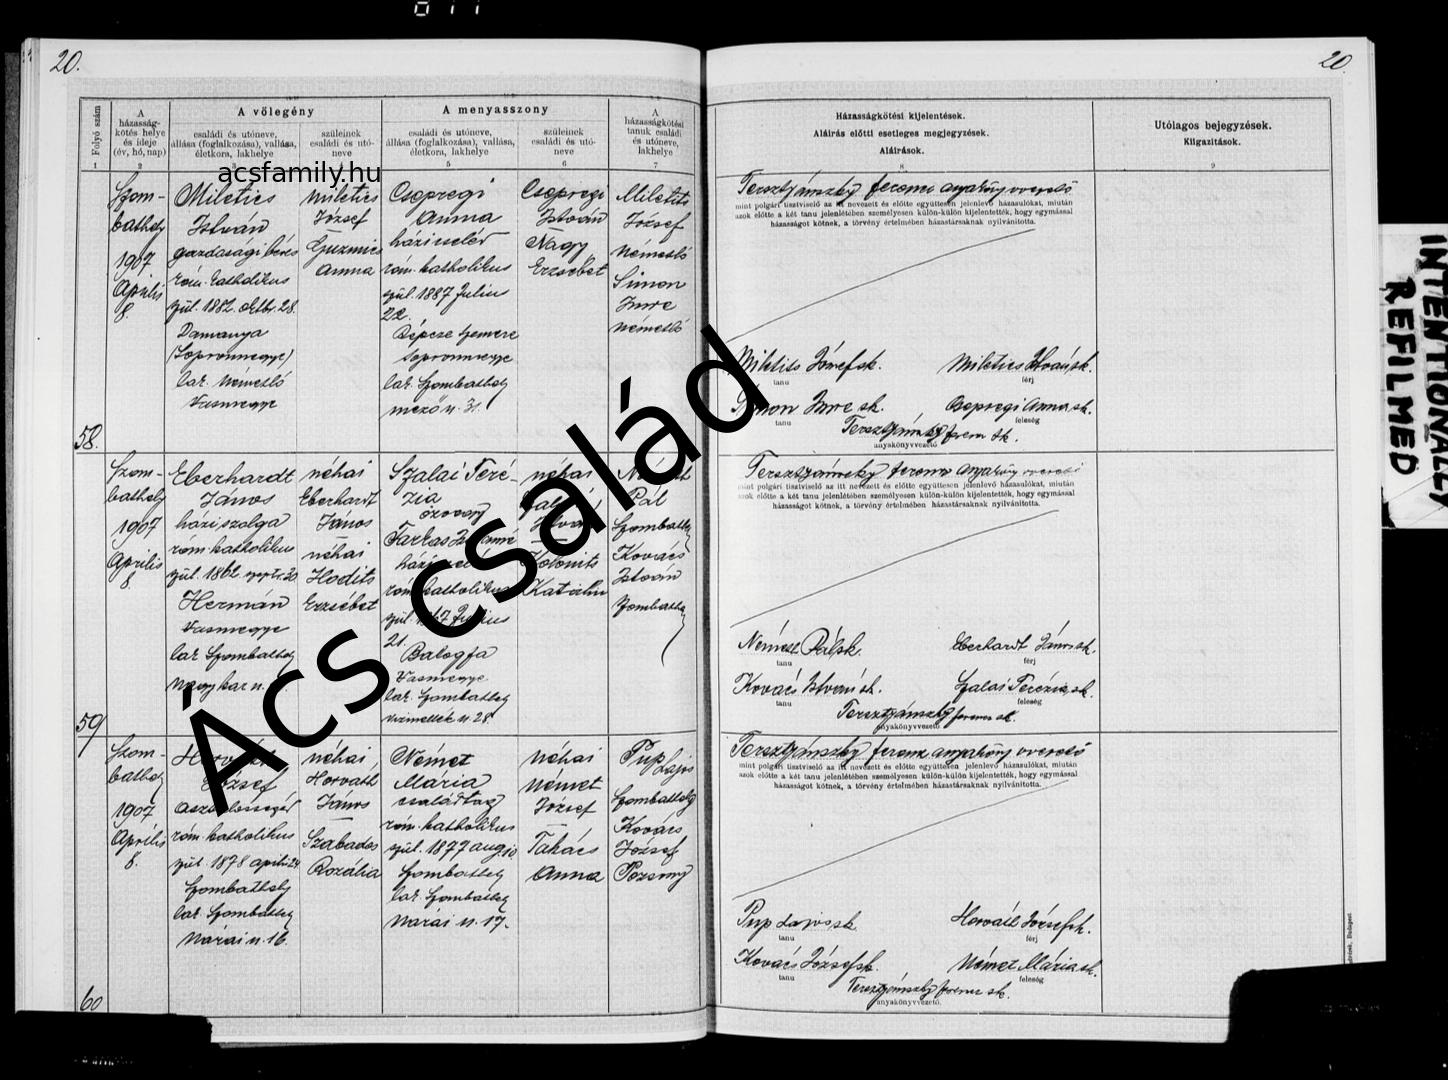 20.
20.
A völegény
A menyasszony
Folyó szám
A
házasság-
kötés helye
és ideje
(év, hó, nap)
családi és utóneve,
állása (foglalkozása), vallása,
életkora, lakhelye
szüleinek
családi és utó-
neve
családi és utóneve,
állása (foglalkozása), vallása,
életkora, lakhelye
szüleinek
családi és utó-
neve
A
házasságkötési
tanuk családi
és utóneve,
lakhelye
Házasságkötési kijelentések.
Aláirás előtti esetleges megjegyzések.
Aláirások.
Utólagos bejegyzések.
Kiigazitások.
1 2 3 5 6 7 8 9
acsfamily.hu
58.
Szom-
bathely
1907
április
8.
Miletics
István
gazdasági béres
róm. katholikus
szül. 1882. oktbr. 28.
Damonya
(Sopronmegye)
lak. Németló
Vasmegye
Miletics
József
Guzmics
Anna
Csepregi
Anna
házicseléd
róm. katholikus
szül. 1887 Julius
22.
Répcze Szemere
Sopronmegye
lak. Szombathely
mező u. 31.
Csepregi
István
Nagy
Erzsébet
Miletits
József
Németló
Simon
Imre
Németló
Tersztyánszky Ferenc anyakönyvvezető
mint polgári tisztviselő az itt nevezett és előtte együttesen jelenlevő házasulókat, miután
azok előtte a két tanu jelenlétében személyesen külön-külön kijelentették, hogy egymással
házasságot kötnek, a törvény értelmében házastársaknak nyilvánitotta.
Miletits József sk.
tanu
Miletics István sk.
férj
Simon Imre sk.
tanu
Csepregi Anna sk.
feleség
Tersztyánszky Ferenc sk.
anyakönyvvezető
59
Szom-
bathely
1907
április
8.
Eberhardt
János
házi szolga
róm. katholikus
szül. 1862. szept. 20
Hermán
Vasmegye
lak. Szombathely
Nagykar u.
néhai
Eberhardt
János
néhai
Hodits
Erzsébet
Szalai Teré-
zia
özvegy
Farkas
róm. katholikus
Julius
21.
Balogfa
Vasmegye
lak. Szombathely
vizmellék u. 28.
néhai
István
Kolonits
Katalin
Németh
Pál
Szombathely
Kovács
István
Szombathely
Tersztyánszky Ferenc anyakönyvvezető
mint polgári tisztviselő az itt nevezett és előtte együttesen jelenlevő házasulókat, miután
azok előtte a két tanu jelenlétében személyesen külön-külön kijelentették, hogy egymással
házasságot kötnek, a törvény értelmében házastársaknak nyilvánitotta.
Német Pál sk.
tanu
Eberhardt János sk.
férj
Kovács István sk.
tanu
Szalai Terézia sk.
feleség
Tersztyánszky Ferenc sk.
anyakönyvvezető
60
Szom-
bathely
1907
április
8.
Horváth
József
asztalossegéd
róm. katholikus
szül. 1878 április 24
Szombathely
lak. Szombathely
Nárai u. 16.
néhai
Horváth
János
Szabados
Rozália
Német
Mária
családtag
róm. katholikus
szül. 1877 aug. 10
Szombathely
lak. Szombathely
Nárai u. 17.
néhai
Német
József
Takács
Anna
Pup Lajos
Szombathely
Kovács
József
Pozsony
Tersztyánszky Ferenc anyakönyvvezető
mint polgári tisztviselő az itt nevezett és előtte együttesen jelenlevő házasulókat, miután
azok előtte a két tanu jelenlétében személyesen külön-külön kijelentették, hogy egymással
házasságot kötnek, a törvény értelmében házastársaknak nyilvánitotta.
Pup Lajos sk.
tanu
Horváth József sk.
férj
Kovács József sk.
tanu
Német Mária sk.
feleség
Tersztyánszky Ferenc sk.
anyakönyvvezető.
Ács család
INTENTIONALLY
REFILMED